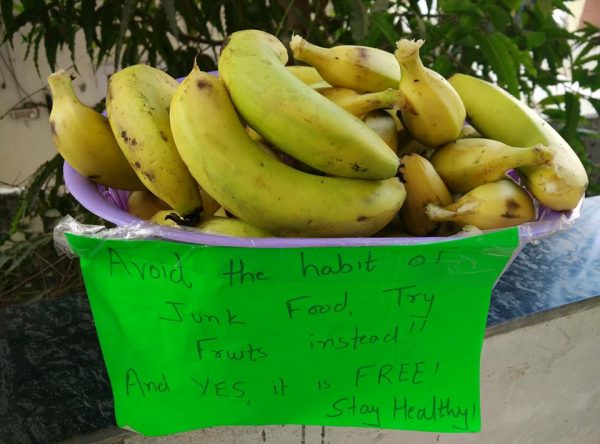 Avoid the habit of
Junk Food, Try
Fruits instead!!
And YES, it is FREE!
Stay Healthy!